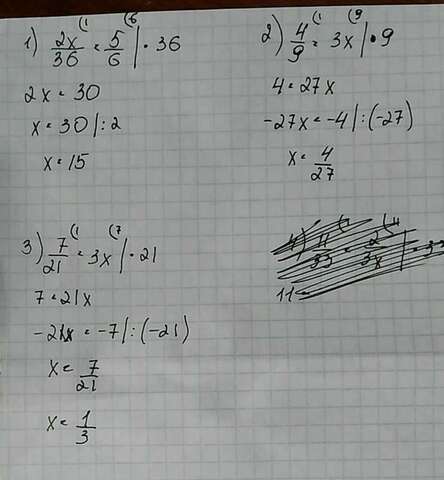 1) 2x/36 (1 = 5/6 (6 | · 36
2x = 30
x = 30 | : 2
x = 15
2) 4/9 (1 = 3x (9 | · 9
4 = 27x
-27x = -4 | : (-27)
x = 4/27
3) 7/21 (1 = 3x (7 | · 21
7 = 21x
-21x = -7 | : (-21)
x = 7/21
x = 1/3
4) 11/33 = 2/3x | · 33
11 =